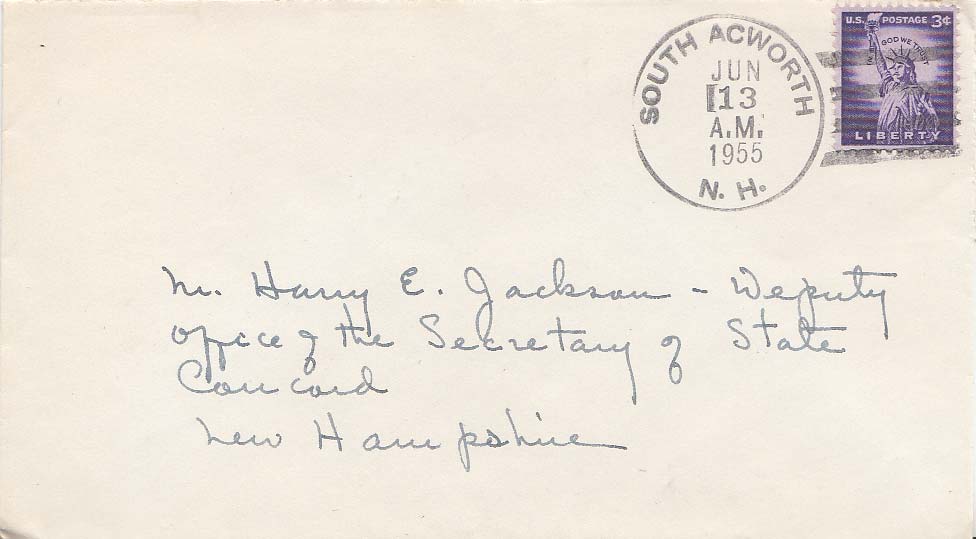 SOUTH ACWORTH
JUN
13
A.M.
1955
N. H.
U.S. POSTAGE 3¢
IN GOD WE TRUST
LIBERTY
Mr. Harry E. Jackson - Deputy
Office of the Secretary of State
Concord
New Hampshire